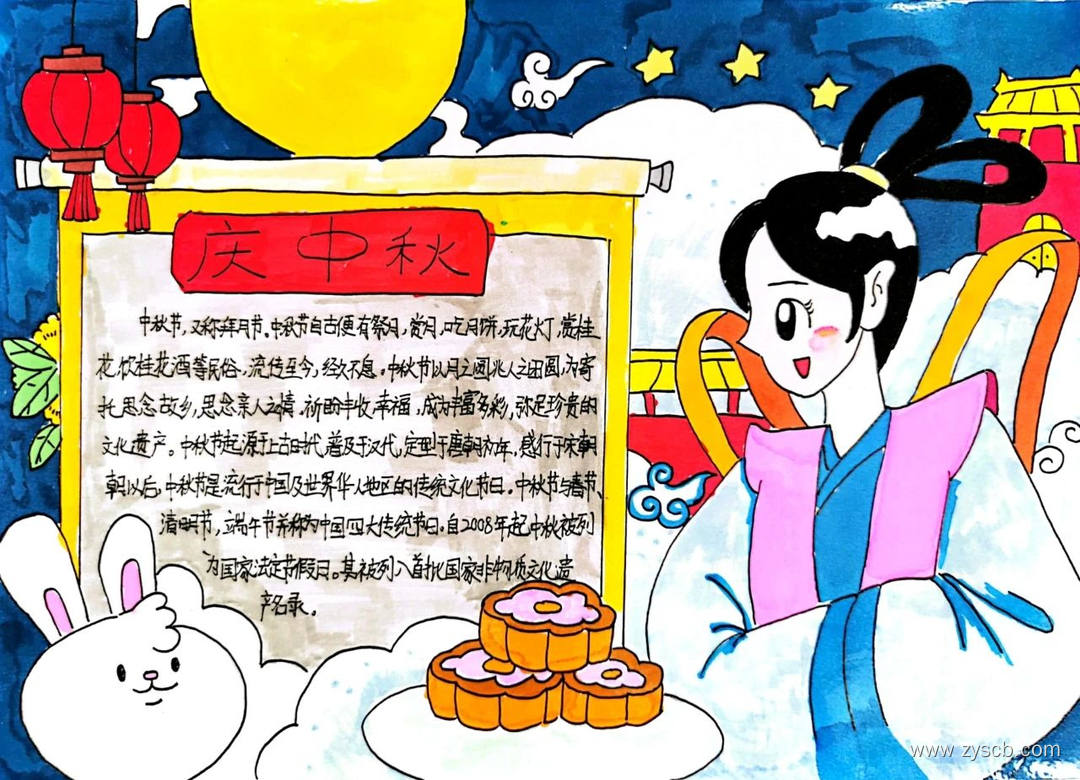 庆中秋
中秋节,又称拜月节。中秋节自古便有祭月,赏月,吃月饼,玩花灯,赏桂
花,饮桂花酒等民俗,流传至今,经久不息。中秋节以月之圆兆人之团圆,为寄
托思念故乡,思念亲人之情,祈盼丰收、幸福,成为丰富多彩,弥足珍贵的
文化遗产。中秋节起源于上古时代,普及于汉代,定型于唐朝初年,盛行于宋朝
朝以后,中秋节是流行于中国及世界华人地区的传统文化节日。中秋节与春节、
清明节,端午节并称为中国四大传统节日。自2008年起中秋被列
为国家法定节假日。其被列入首批国家非物质文化遗
产名录。
www.zyscb.com